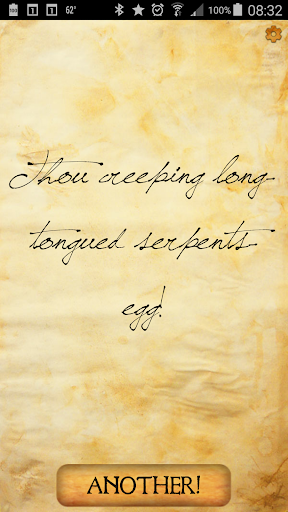 1 1 62° 100% 08:32
Thou creeping long-
tongued serpents
egg!
ANOTHER!